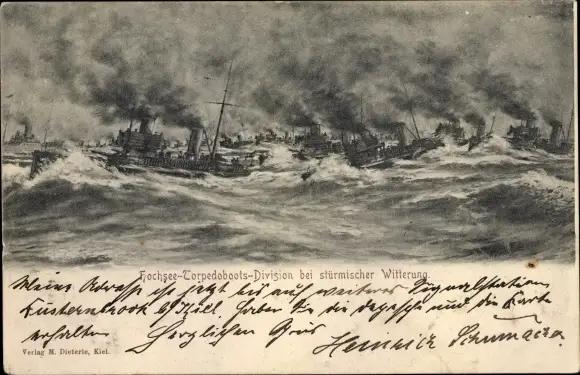 Hochsee-Torpedoboots-Division bei stürmischer Witterung.
Meine Adresse ist jetzt bis auf weiteres Signalstation
Düsternbrook b/Kiel. Haben Sie die Depesche und die Karte
erhalten Herzlichen Gruß
Heinrich Schumacher
Verlag M. Dieterle, Kiel.